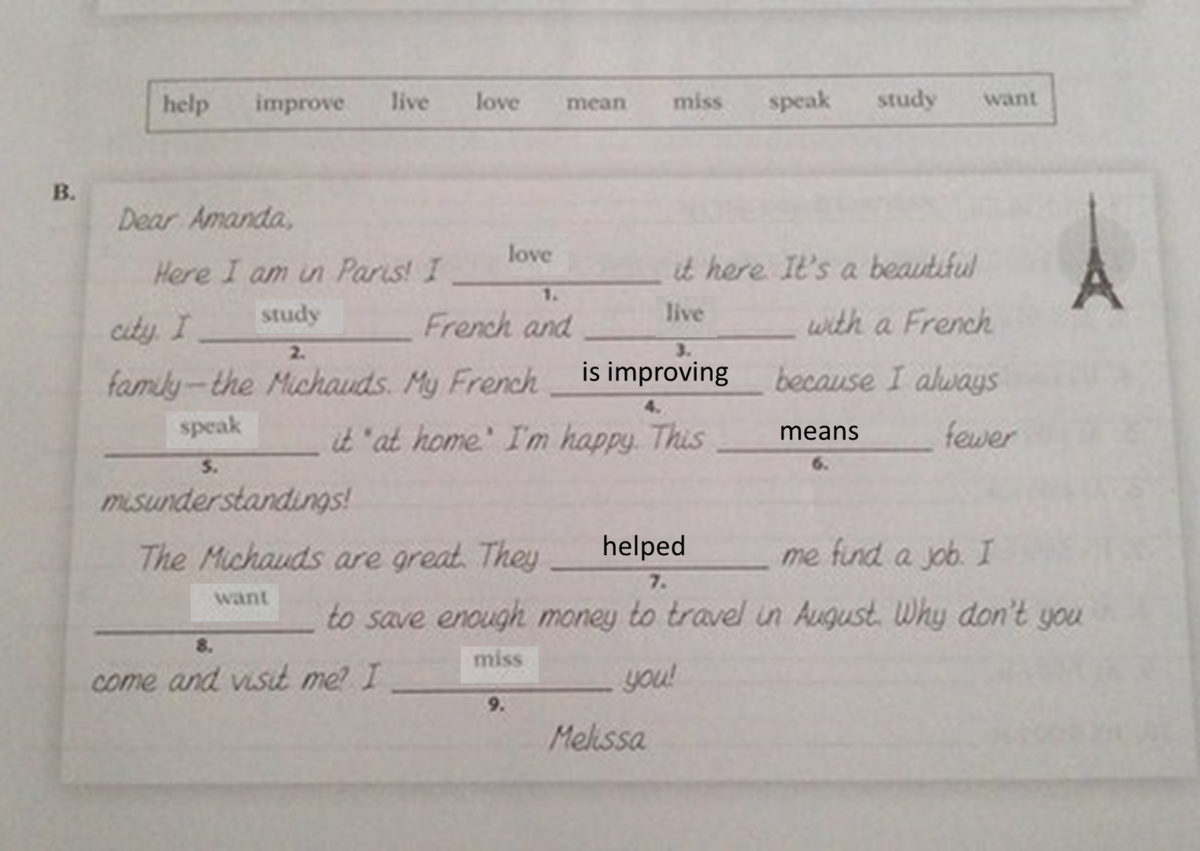 help improve live love mean miss speak study want
B.
Dear Amanda,
Here I am in Paris! I love it here. It's a beautiful
1.
city. I study French and live with a French
2. 3.
family—the Michauds. My French is improving because I always
4.
speak it "at home." I'm happy. This means fewer
5. 6.
misunderstandings!
The Michauds are great. They helped me find a job. I
7.
want to save enough money to travel in August. Why don't you
8.
come and visit me? I miss you!
9.
Melissa